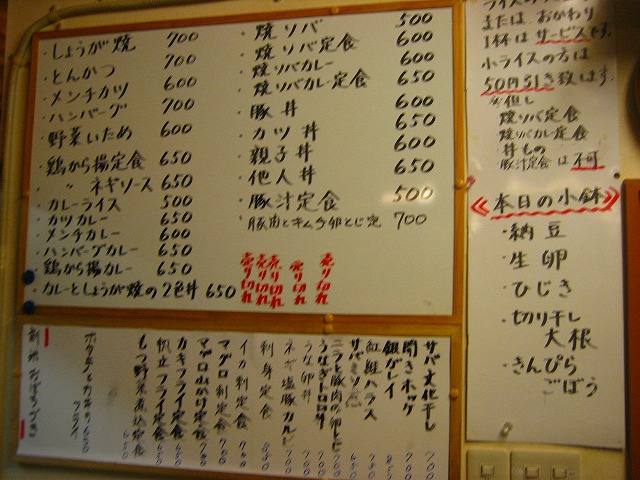 ・しょうが焼 700
・とんかつ 700
・メンチカツ 600
・ハンバーグ 700
・野菜いため 600
・鶏から揚定食 650
・〃 ネギソース 650
・カレーライス 500
・カツカレー 650
・メンチカレー 600
・ハンバーグカレー 650
・鶏から揚カレー 650
・カレーとしょうが焼の2色丼 650
・焼ソバ 500
・焼ソバ定食 600
・焼ソバカレー 600
・焼ソバカレー定食 650
・豚丼 600
・カツ丼 650
・親子丼 600
・他人丼 650
・豚汁定食 500
・豚肉とキムチ卵とじ定 700
売り切れ
売り切れ
売り切れ
売り切れ
売り切れ
または おかわり
1杯は サービスです。
小ライスの方は
50円引き致します。
※但し
焼ソバ定食
焼ソバカレー定食
丼もの
豚汁定食は不可
《本日の小鉢》
・納豆
・生卵
・ひじき
・切り干し
大根
・きんぴら
ごぼう
サバ文化干し 700
開きホッケ 700
銀ガレイ
紅鮭ハラス 700
サバミソ 650
ニラと豚肉の卵とじ 700
うなぎトロロ
うな卵丼 700
ネギ塩豚カルビ 700
刺身定食
イカ刺定食 700
マグロ刺定食 700
マグロ山かけ定食 700
カキフライ定食 650
帆立フライ定食 650
もつ野菜煮込定食 650
フライ 650